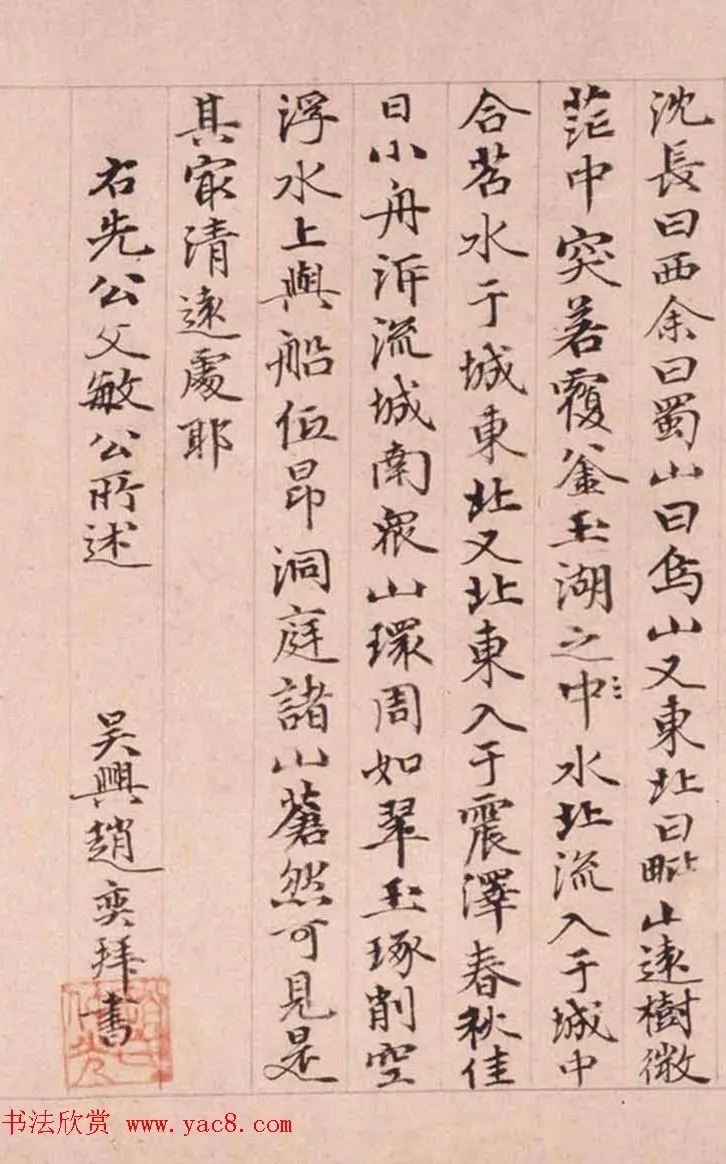 沈長曰西余曰蜀山曰烏山又東北曰毗山遠樹微
茫中突若覆釜玉湖之中水北流入于城中
合苕水于城東北又北東入于震澤春秋佳
日小舟泝流城南衆山環周如翠玉琢削空
浮水上與船低昂洞庭諸山蒼然可見是
其最清遠處耶
右先公文敏公所述
吳興趙奕拜書
书法欣赏 www.yac8.com